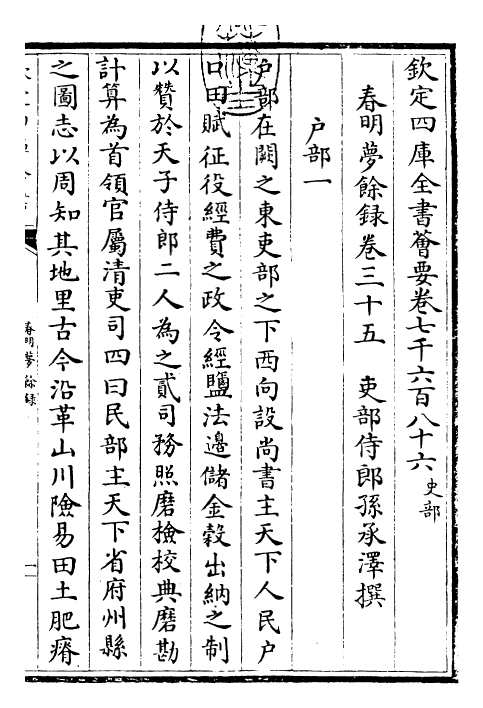 欽定四庫全書薈要卷七千六百八十六 史部
春明夢餘錄卷三十五 吏部侍郎孫承澤撰
户部一
户部在闕之東吏部之下西向設尚書主天下人民户
口田賦征役經費之政令經鹽法邊儲金穀出納之制
以贊於天子侍郎二人為之貳司務照磨檢校典磨勘
計算為首領官屬清吏司四曰民部主天下省府州縣
之圖志以周知其地里古今沿革山川險易田土肥瘠
春明夢餘錄
一